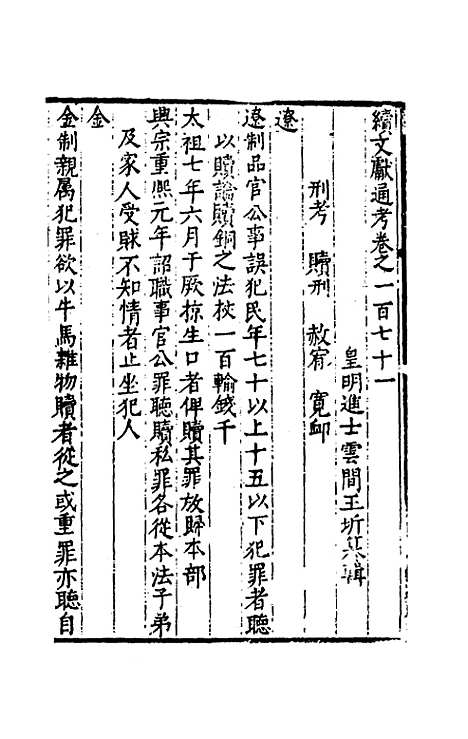 續文獻通考卷之一百七十一
皇明進士雲間王圻纂輯
刑考　贖刑　赦宥　寬卹
遼
遼制品官公事誤犯民年七十以上十五以下犯罪者聽
以贖論贖銅之法杖一百輸錢千
太祖七年六月于厥掠生口者俾贖其罪放歸本部
興宗重熙元年詔職事官公罪聽贖私罪各從本法子弟
及家人受賕不知情者止坐犯人
金
金制親屬犯罪欲以牛馬雜物贖者從之或重罪亦聽自